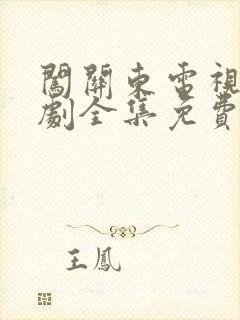 闖關東電視
劇全集免費
王鳳